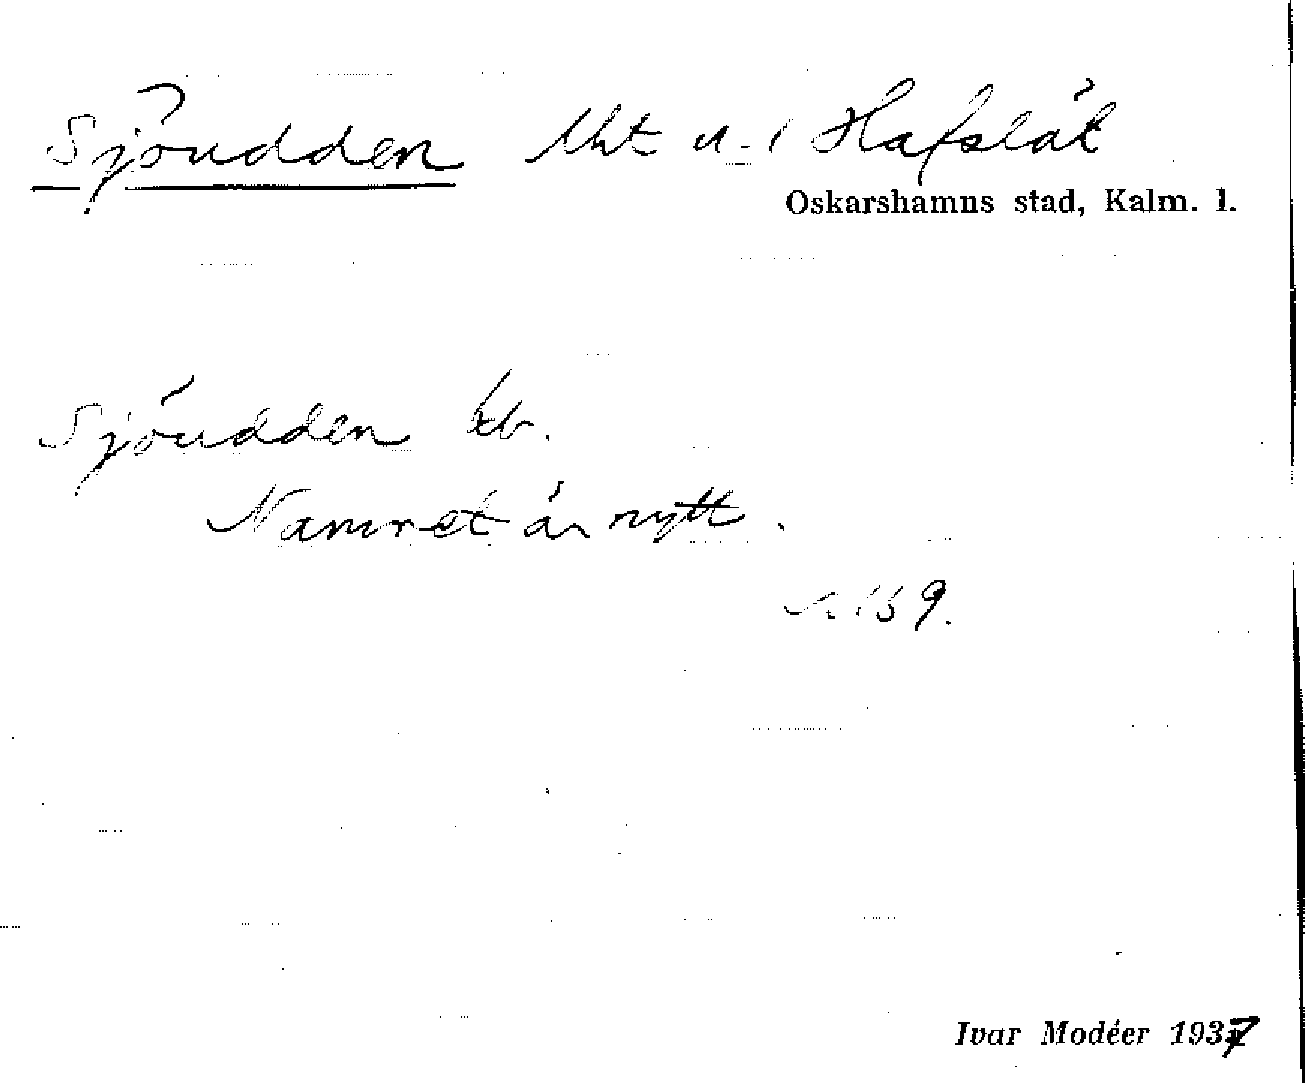 Sjöudden lht u. / Hafslätt
Oskarshamns stad, Kalm. l.
Sjöudden kb.
Namnet är nytt.
s. 159.
Ivar Modéer 1937